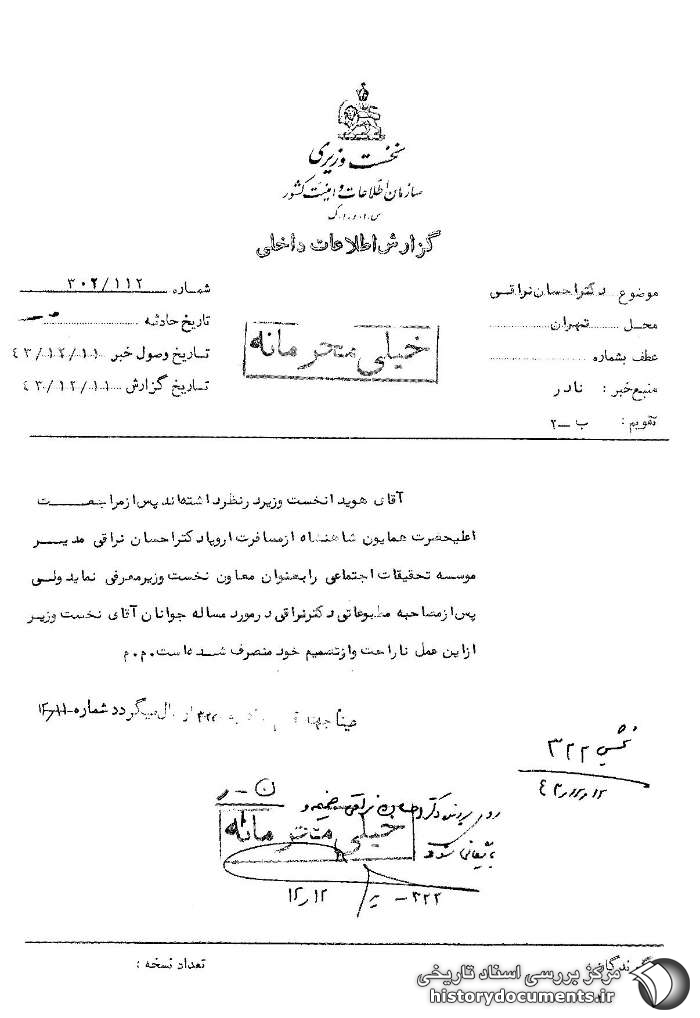 نخست وزیری
سازمان اطلاعات و امنیت کشور
س.ا.و.ا.ک
گزارش اطلاعات داخلی
موضوع دکتر احسان نراقی
محل تهران
عطف بشماره
منبع خبر : نادر
تقویم : ب ـ ۲
شماره ۳۰۲/۱۱۲
تاریخ حادثه
تاریخ وصول خبر ۴۳/۱۲/۱۱
تاریخ گزارش ۴۳/۱۲/۱۱
خیلی محرمانه
آقای هویدا نخست وزیر در نظر داشته‌اند پس از مراجعت
اعلیحضرت همایون شاهنشاه از مسافرت اروپا دکتر احسان نراقی مدیر
موسسه تحقیقات اجتماعی را بعنوان معاون نخست وزیر معرفی نماید ولی
پس از مصاحبه مطبوعاتی دکتر نراقی در مورد مساله جوانان آقای نخست وزیر
از این عمل ناراحت و از تصمیم خود منصرف شده است. م. م
عیناً جهت ۳۲۲ ارسال میگردد شماره
بخش ۳۲۲
۴۳/۱۲/۱۲
ن ـ ر
نراقی ضمیمه و
بایگانی شود
خیلی محرمانه
۳۲۲ ـ
۱۲/۱۲
تعداد نسخه :
مرکز بررسی اسناد تاریخی
historydocuments.ir